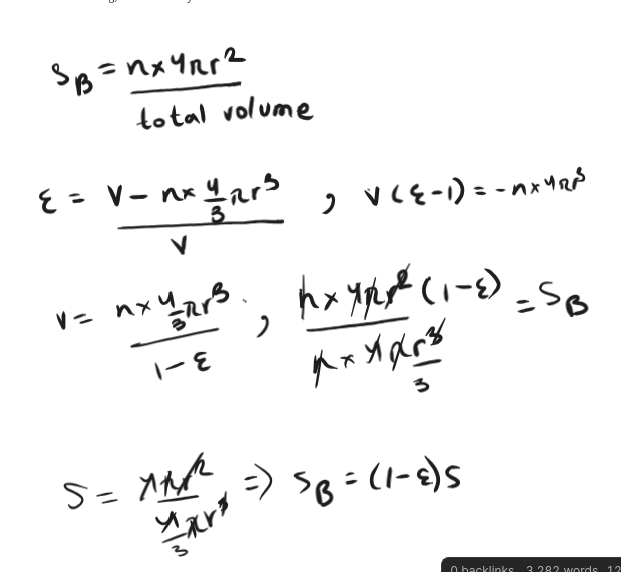 S_B = n×4πr² / total volume
ε = (V − n×4/3πr³) / V , V(ε−1) = −n×4πr³
V = (n×4/3πr³) / (1−ε) , n×4πr²(1−ε) / (n×4πr³/3) = S_B
S = 4πr² / (4/3πr³) => S_B = (1−ε)S
0 backlinks 3,282 words